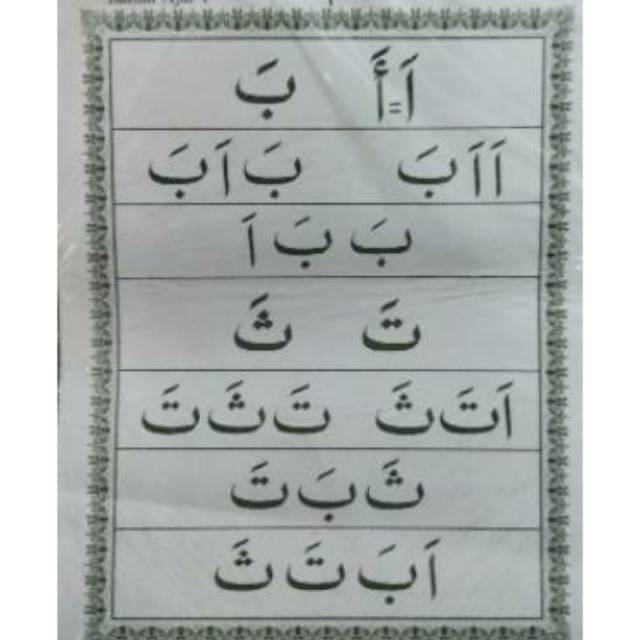 اَ = أَ بَ
اَ اَ بَ بَ اَ بَ
بَ بَ اَ
تَ ثَ
اَ تَ ثَ تَ ثَ تَ
ثَ بَ تَ
اَ بَ تَ ثَ